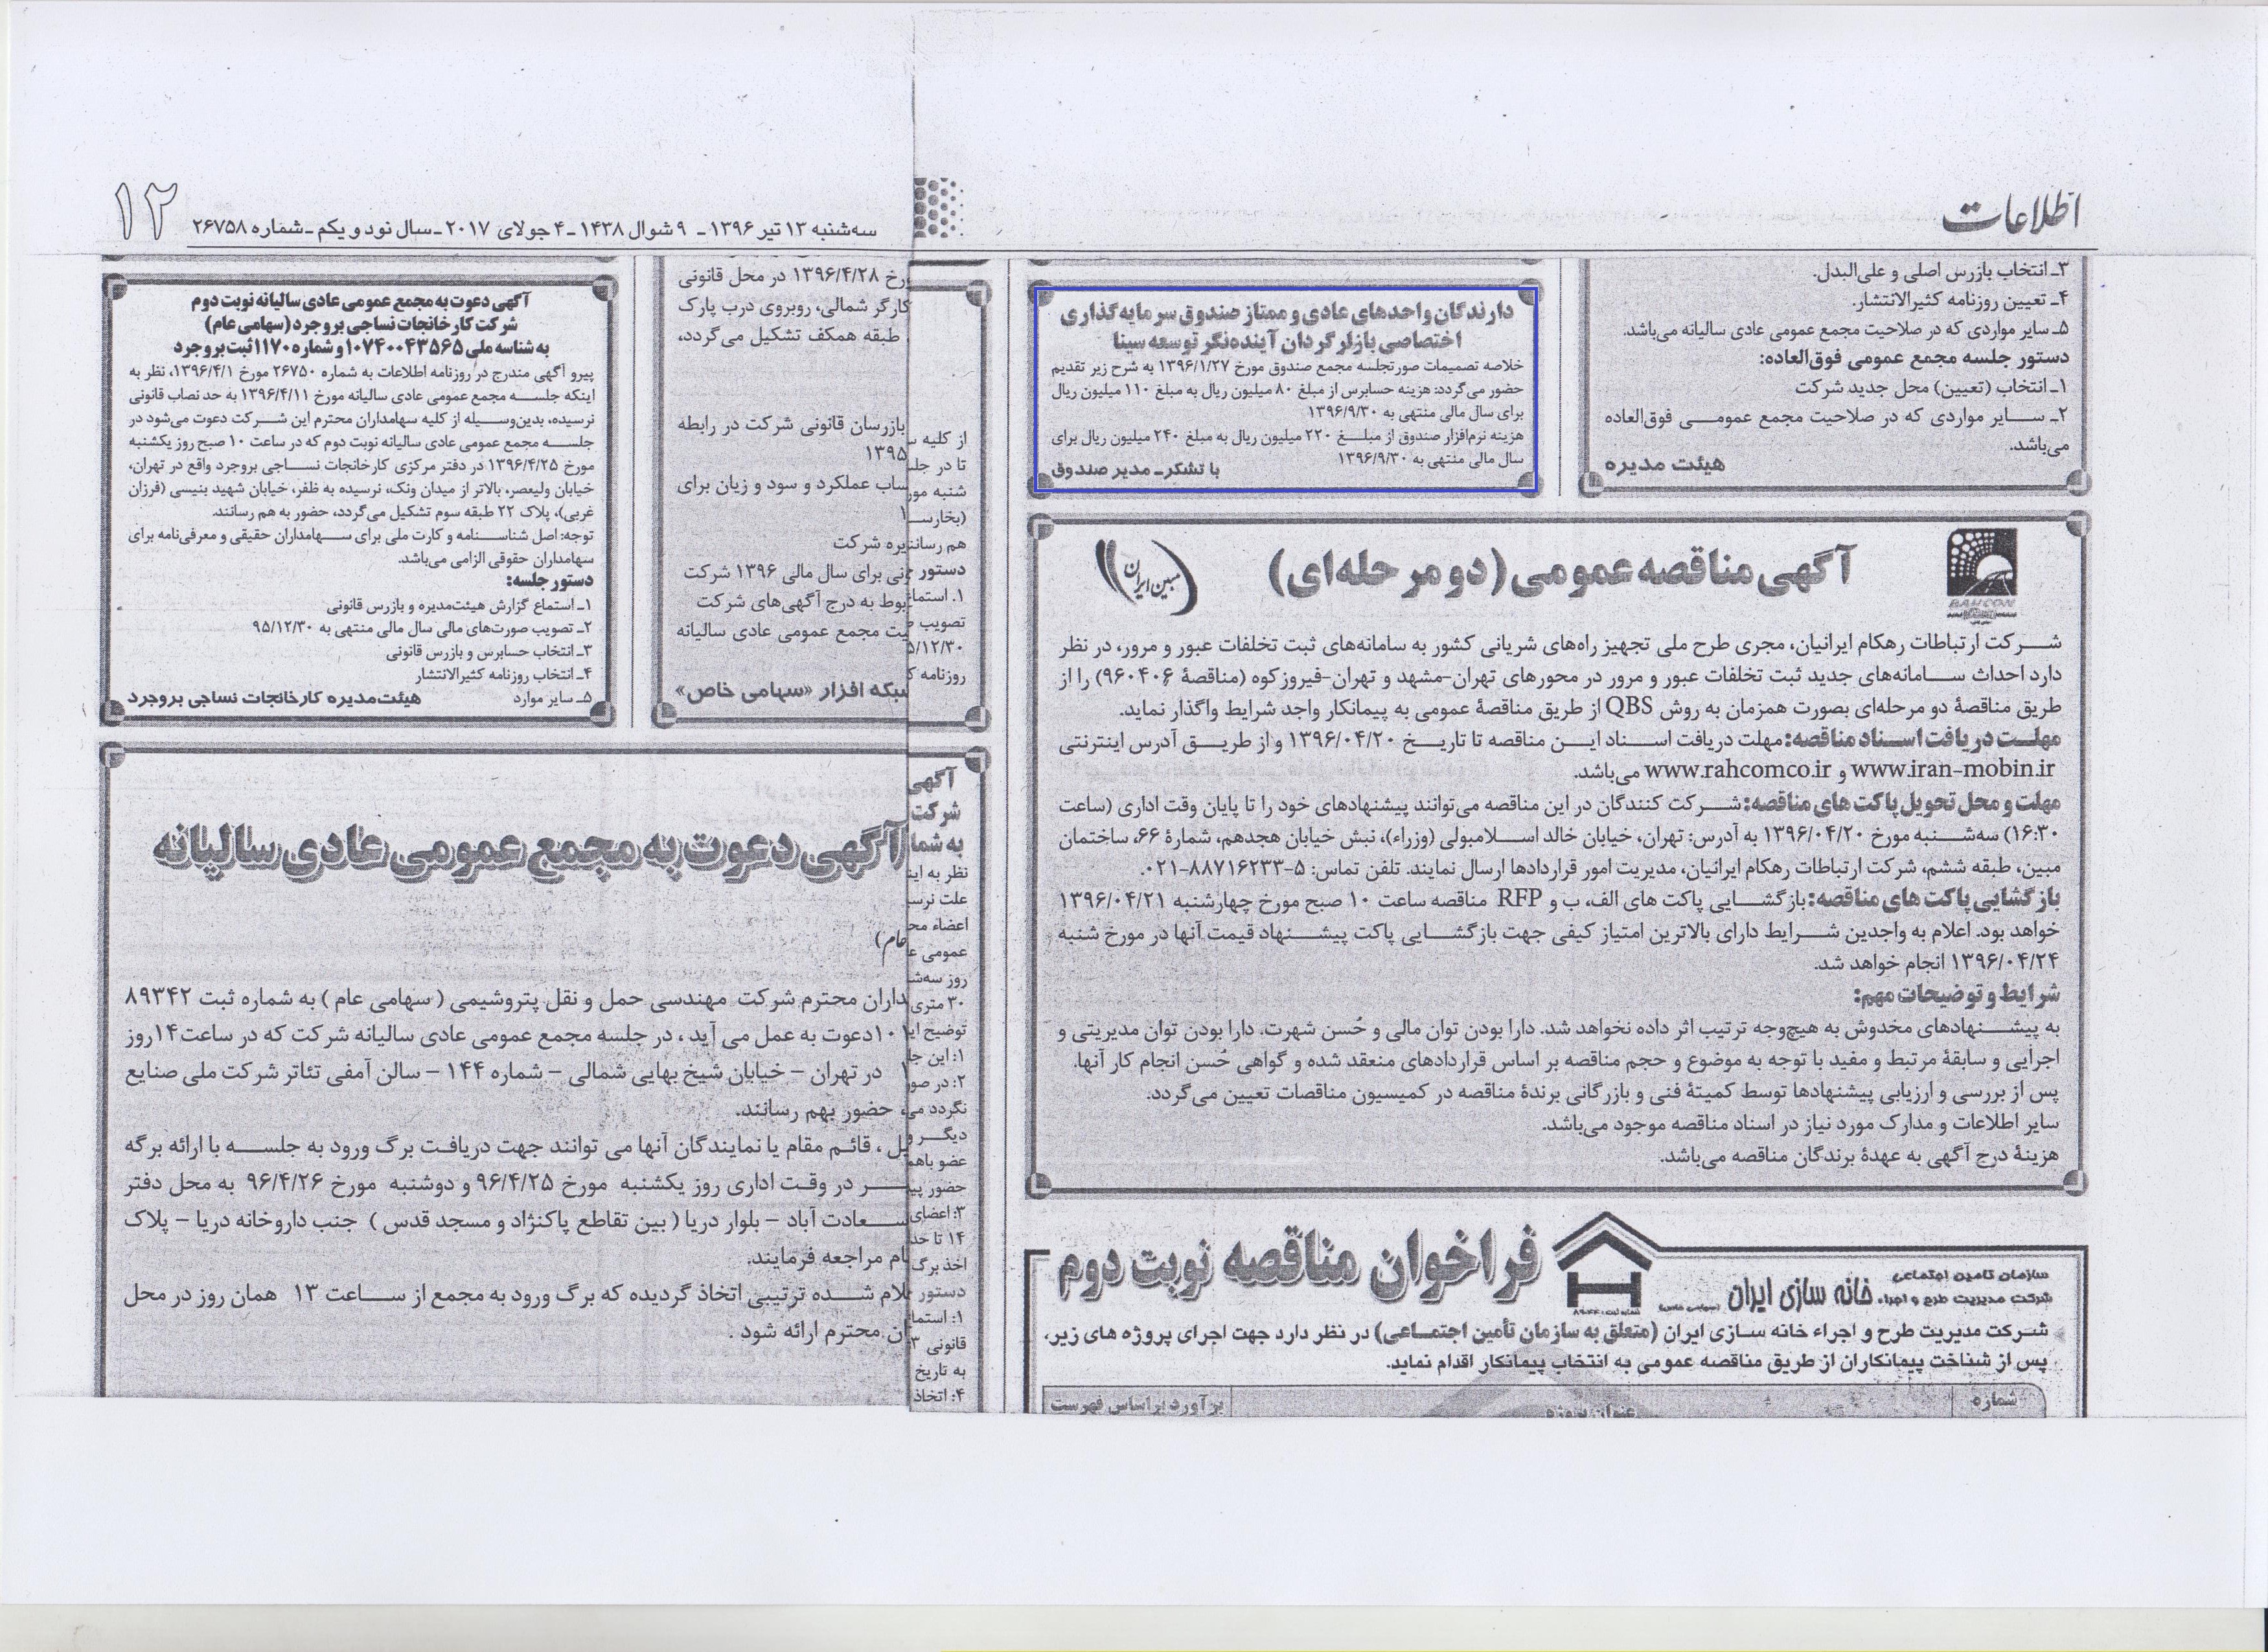 اطلاعات
سه‌شنبه ۱۳ تیر ۱۳۹۶ـ ۹ شوال ۱۴۳۸ـ ۴ جولای ۲۰۱۷ـ سال نود و یکم ـ شماره ۲۶۷۵۸
۱۲
۳ـ انتخاب بازرس اصلی و علی‌البدل.
۴ـ تعیین روزنامه کثیرالانتشار.
۵ـ سایر مواردی که در صلاحیت مجمع عمومی عادی سالیانه می‌باشد.
دستور جلسه مجمع عمومی فوق‌العاده:
۱ـ انتخاب (تعیین) محل جدید شرکت
۲ـ سایر مواردی که در صلاحیت مجمع عمومی فوق‌العاده
می‌باشد.
هیئت مدیره
دارندگان واحدهای عادی و ممتاز صندوق سرمایه‌گذاری
اختصاصی بازارگردان آینده‌نگر توسعه سینا
خلاصه تصمیمات صورتجلسه مجمع صندوق مورخ ۱۳۹۶/۱/۲۷ به شرح زیر تقدیم
حضور می‌گردد: هزینه حسابرس از مبلغ ۸۰ میلیون ریال به مبلغ ۱۱۰ میلیون ریال
برای سال مالی منتهی به ۱۳۹۶/۹/۳۰
هزینه نرم‌افزار صندوق از مبلغ ۲۲۰ میلیون ریال به مبلغ ۲۴۰ میلیون ریال برای
سال مالی منتهی به ۱۳۹۶/۹/۳۰
با تشکرـ مدیر صندوق
RAHCON
آگهی مناقصه عمومی (دو مرحله‌ای)
مبین ایران
شرکت ارتباطات رهکام ایرانیان، مجری طرح ملی تجهیز راه‌های شریانی کشور به سامانه‌های ثبت تخلفات عبور و مرور، در نظر
دارد احداث سامانه‌های جدید ثبت تخلفات عبور و مرور در محورهای تهران-مشهد و تهران-فیروزکوه (مناقصهٔ ۹۶۰۴۰۶) را از
طریق مناقصهٔ دو مرحله‌ای بصورت همزمان به روش QBS از طریق مناقصهٔ عمومی به پیمانکار واجد شرایط واگذار نماید.
مهلت دریافت اسناد مناقصه: مهلت دریافت اسناد این مناقصه تا تاریخ ۱۳۹۶/۰۴/۲۰ و از طریق آدرس اینترنتی
www.iran-mobin.ir و www.rahcomco.ir می‌باشد.
مهلت و محل تحویل پاکت های مناقصه: شرکت کنندگان در این مناقصه می‌توانند پیشنهادهای خود را تا پایان وقت اداری (ساعت
۱۶:۳۰) سه‌شنبه مورخ ۱۳۹۶/۰۴/۲۰ به آدرس: تهران، خیابان خالد اسلامبولی (وزراء)، نبش خیابان هجدهم، شمارهٔ ۶۶، ساختمان
مبین، طبقه ششم، شرکت ارتباطات رهکام ایرانیان، مدیریت امور قراردادها ارسال نمایند. تلفن تماس: ۵-۸۸۷۱۶۲۳۳-۰۲۱.
بازگشایی پاکت های مناقصه: بازگشایی پاکت های الف، ب و RFP مناقصه ساعت ۱۰ صبح مورخ چهارشنبه ۱۳۹۶/۰۴/۲۱
خواهد بود. اعلام به واجدین شرایط دارای بالاترین امتیاز کیفی جهت بازگشایی پاکت پیشنهاد قیمت آنها در مورخ شنبه
۱۳۹۶/۰۴/۲۴ انجام خواهد شد.
شرایط و توضیحات مهم:
به پیشنهادهای مخدوش به هیچ‌وجه ترتیب اثر داده نخواهد شد. دارا بودن توان مالی و حُسن شهرت، دارا بودن توان مدیریتی و
اجرایی و سابقهٔ مرتبط و مفید با توجه به موضوع و حجم مناقصه بر اساس قراردادهای منعقد شده و گواهی حُسن انجام کار آنها.
پس از بررسی و ارزیابی پیشنهادها توسط کمیتهٔ فنی و بازرگانی برندهٔ مناقصه در کمیسیون مناقصات تعیین می‌گردد.
سایر اطلاعات و مدارک مورد نیاز در اسناد مناقصه موجود می‌باشد.
هزینهٔ درج آگهی به عهدهٔ برندگان مناقصه می‌باشد.
سازمان تامین اجتماعی
شرکت مدیریت طرح و اجراء خانه سازی ایران (سهامی خاص)
فراخوان مناقصه نوبت دوم
شرکت مدیریت طرح و اجراء خانه سازی ایران (متعلق به سازمان تأمین اجتماعی) در نظر دارد جهت اجرای پروژه های زیر،
پس از شناخت پیمانکاران از طریق مناقصه عمومی به انتخاب پیمانکار اقدام نماید.
شماره
عنوان پروژه
برآورد براساس فهرست
از کلیه س
تا در جل
شنبه مور
(بخارس
هم رسانن
دستور ج
۱. استما
تصویب ص
۵/۱۲/۳۰
روزنامه ک
ورخ ۱۳۹۶/۴/۲۸ در محل قانونی
کارگر شمالی، روبروی درب پارک
، طبقه همکف تشکیل می‌گردد،
بازرسان قانونی شرکت در رابطه
۱۳۹۵
ساب عملکرد و سود و زیان برای
یره شرکت
نی برای سال مالی ۱۳۹۶ شرکت
بوط به درج آگهی‌های شرکت
یت مجمع عمومی عادی سالیانه
شبکه افزار «سهامی خاص»
آگهی
شرکت
به شما
نظر به این
علت نرس
اعضاء مح
عمومی ع
روز سه‌ش
۳۰ متری
توضیح ای
۱: این جا
۲: در صو
نگردد می
دیگر و
عضو باهم
حضور پی
۳: اعضای
۱۴ تا حد
اخذ برگ
دستور
۱: استما
قانونی ۳
به تاریخ
۴: اتخاذ
آگهی دعوت به مجمع عمومی عادی سالیانه نوبت دوم
شرکت کارخانجات نساجی بروجرد (سهامی عام)
به شناسه ملی ۱۰۷۴۰۰۴۳۵۶۵ و شماره ۱۱۷۰ ثبت بروجرد
پیرو آگهی مندرج در روزنامه اطلاعات به شماره ۲۶۷۵۰ مورخ ۱۳۹۶/۴/۱، نظر به
اینکه جلسه مجمع عمومی عادی سالیانه مورخ ۱۳۹۶/۴/۱۱ به حد نصاب قانونی
نرسیده، بدین‌وسیله از کلیه سهامداران محترم این شرکت دعوت می‌شود در
جلسه مجمع عمومی عادی سالیانه نوبت دوم که در ساعت ۱۰ صبح روز یکشنبه
مورخ ۱۳۹۶/۴/۲۵ در دفتر مرکزی کارخانجات نساجی بروجرد واقع در تهران،
خیابان ولیعصر، بالاتر از میدان ونک، نرسیده به ظفر، خیابان شهید بنیسی (فرزان
غربی)، پلاک ۲۲ طبقه سوم تشکیل می‌گردد، حضور به هم رسانند.
توجه: اصل شناسنامه و کارت ملی برای سهامداران حقیقی و معرفی‌نامه برای
سهامداران حقوقی الزامی می‌باشد.
دستور جلسه:
۱ـ استماع گزارش هیئت‌مدیره و بازرس قانونی
۲ـ تصویب صورت‌های مالی سال مالی منتهی به ۹۵/۱۲/۳۰
۳ـ انتخاب حسابرس و بازرس قانونی
۴ـ انتخاب روزنامه کثیرالانتشار
۵ـ سایر موارد
هیئت‌مدیره کارخانجات نساجی بروجرد
آگهی دعوت به مجمع عمومی عادی سالیانه
عام)
داران محترم شرکت مهندسی حمل و نقل پتروشیمی ( سهامی عام ) به شماره ثبت ۸۹۳۴۲
۱۰ دعوت به عمل می آید ، در جلسه مجمع عمومی عادی سالیانه شرکت که در ساعت ۱۴ روز
در تهران – خیابان شیخ بهایی شمالی – شماره ۱۴۴ – سالن آمفی تئاتر شرکت ملی صنایع
، حضور بهم رسانند.
یل ، قائم مقام یا نمایندگان آنها می توانند جهت دریافت برگ ورود به جلسه با ارائه برگه
ر در وقت اداری روز یکشنبه مورخ ۹۶/۴/۲۵ و دوشنبه مورخ ۹۶/۴/۲۶ به محل دفتر
سعادت آباد – بلوار دریا ( بین تقاطع پاکنژاد و مسجد قدس ) جنب داروخانه دریا – پلاک
ام مراجعه فرمایند.
لام شده ترتیبی اتخاذ گردیده که برگ ورود به مجمع از ساعت ۱۳ همان روز در محل
ان محترم ارائه شود .